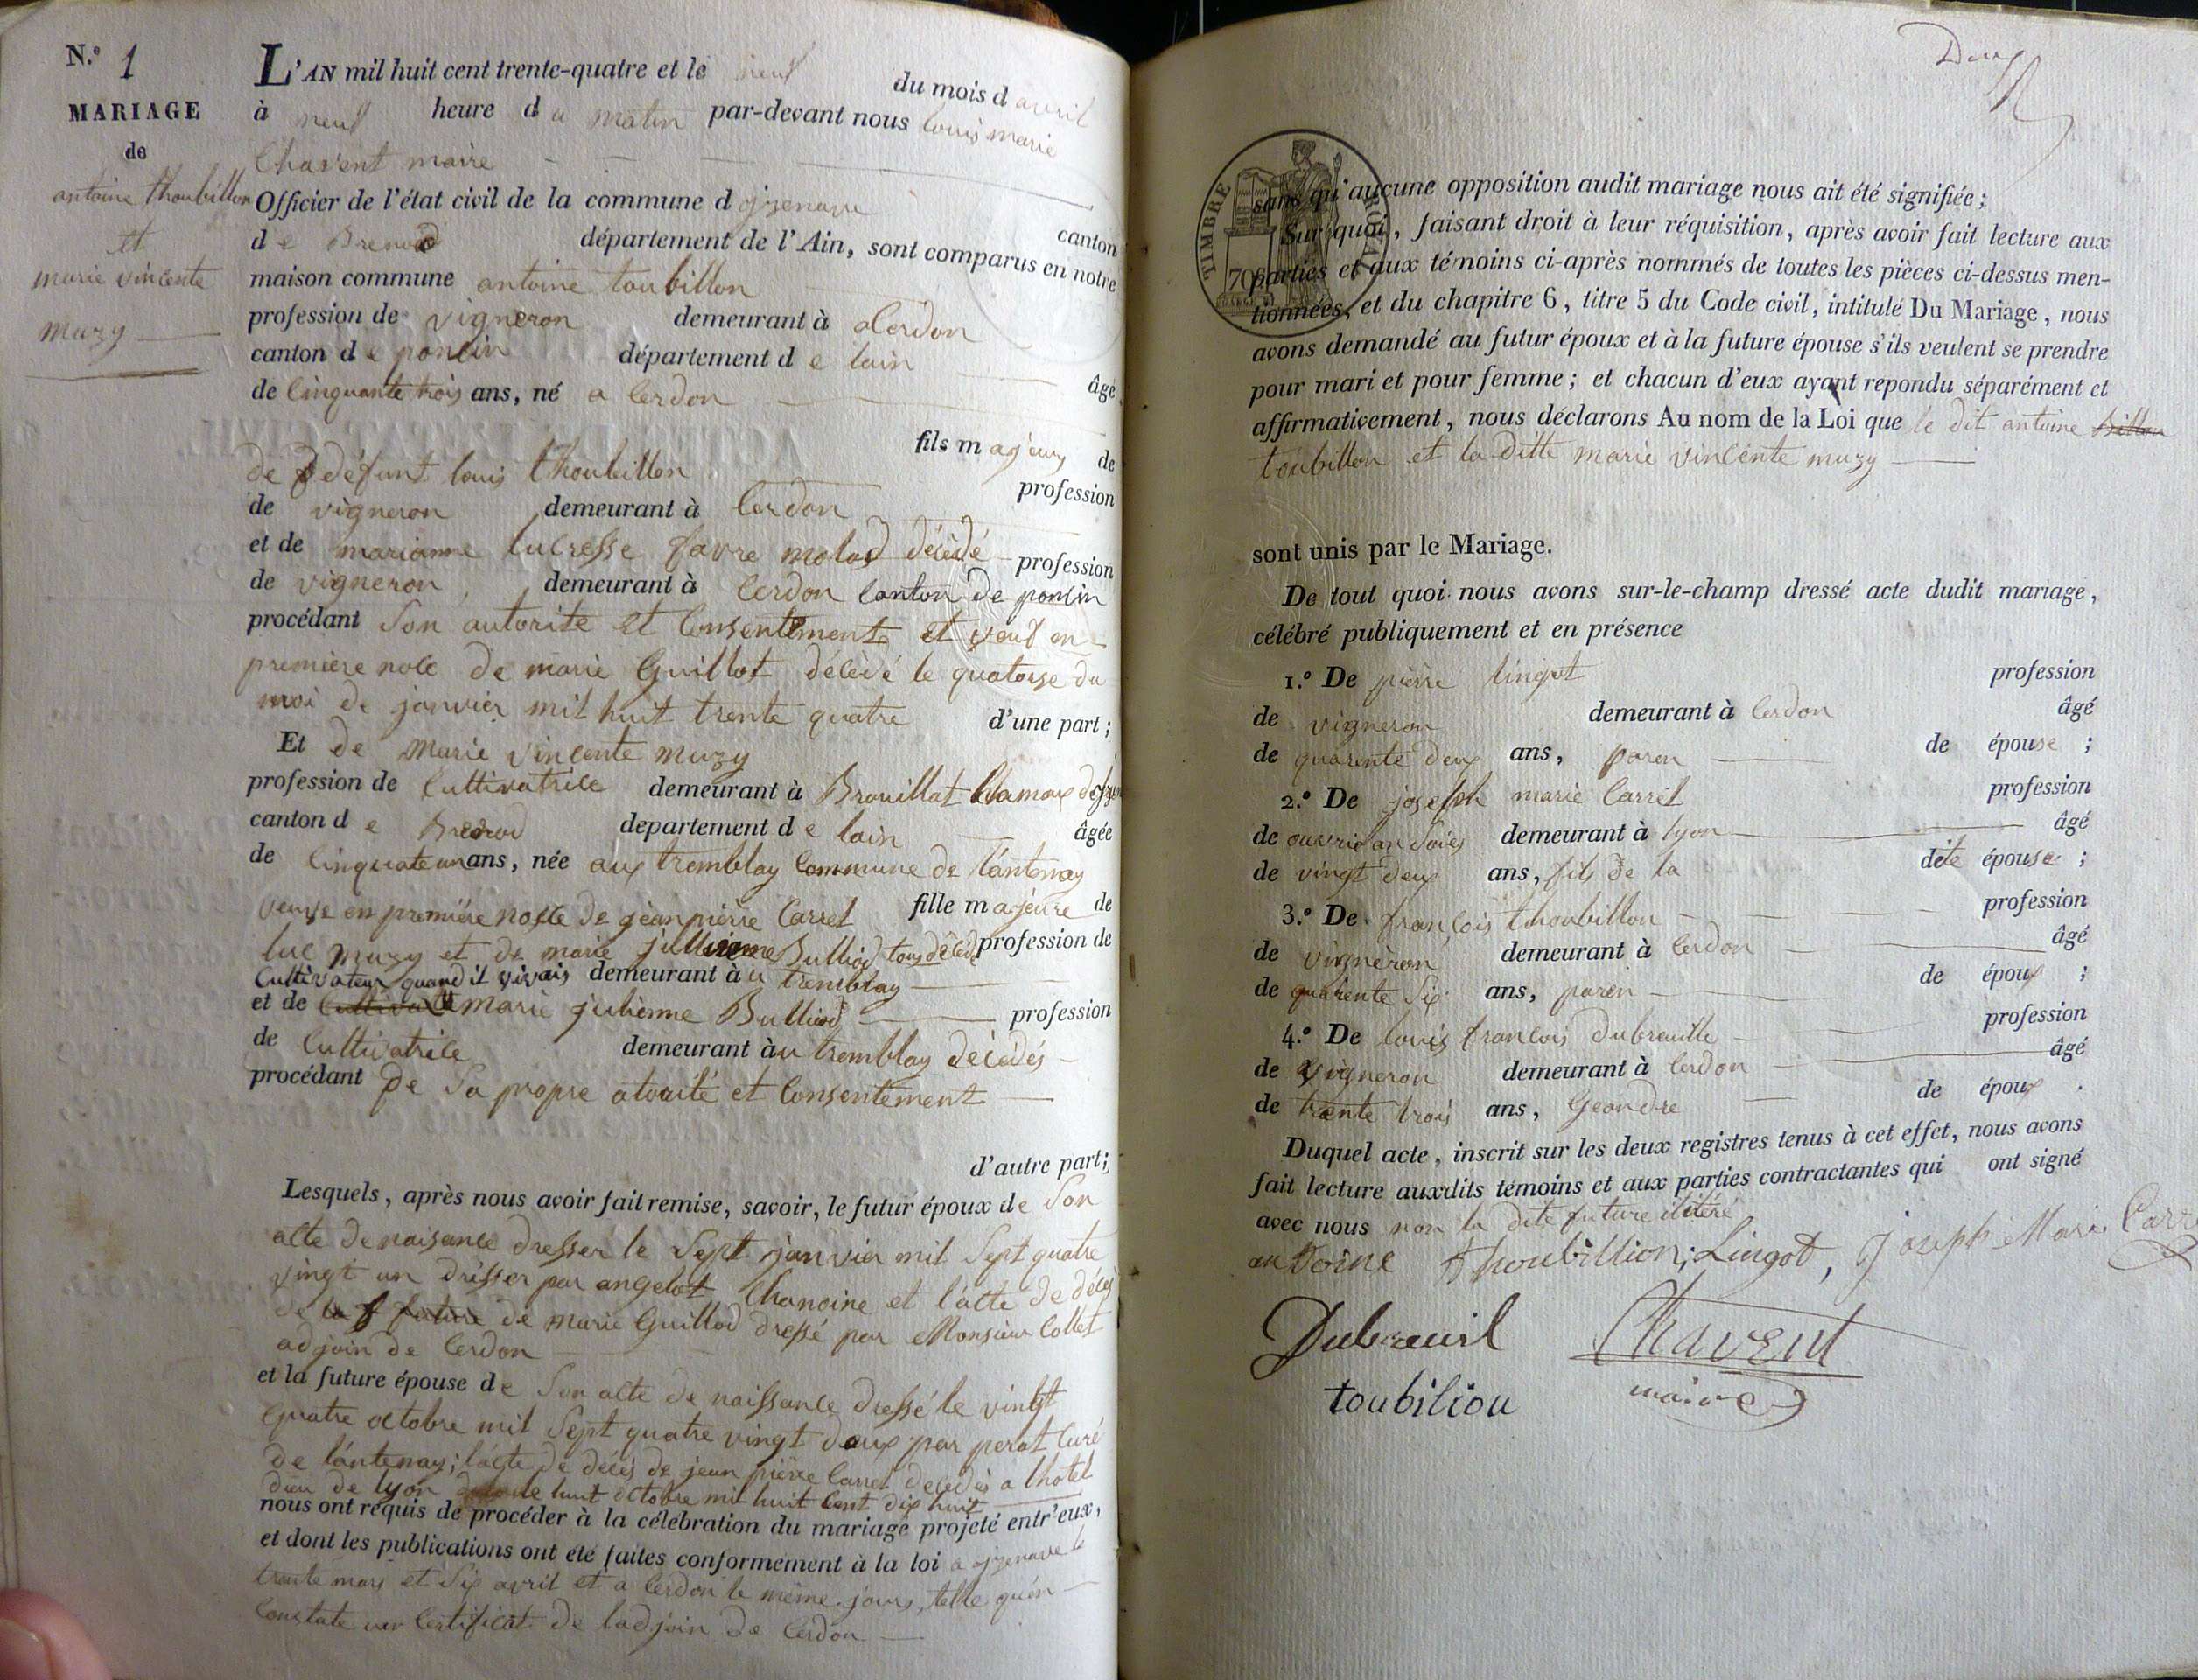 N.º 1
MARIAGE
de
antoine thoubillon
et
marie vincente
muzy
L'AN mil huit cent trente-quatre et le neuf du mois d avril
à neuf heure d u matin par-devant nous louis marie
Chavent maire
Officier de l'état civil de la commune d izenave canton
d e Brenod département de l'Ain, sont comparus en notre
maison commune antoine toubillon
profession de vigneron demeurant à Cerdon
canton d e poncin département d e lain âgé
de Cinquante trois ans, né a Cerdon
fils m ajeur de
de défunt louis thoubillon profession
de vigneron demeurant à Cerdon
et de marianne lucresse favre molad décédé profession
de vigneron demeurant à Cerdon Canton de poncin
procédant Son autorite et Consentement et veuf en
première noce de marie Guillot décédé le quatorze du
moi de janvier mil huit trente quatre d'une part ;
Et de Marie vincente muzy
profession de Cultivatrice demeurant à Brouillat
canton d e Brenod departement d e lain âgée
de Cinquate un ans, née aux tremblay Commune de lantenay
veuve en première nosce de jean pierre Carret fille m ajeure de
luc muzy et de marie jullienne Bulliod tous décédé profession de
Cultivateur quand il vivais demeurant à u tremblay
et de marie julienne Bulliod profession
de Cultivatrice demeurant à u tremblay décédés
procédant de Sa propre atorité et Consentement
d'autre part ;
Lesquels, après nous avoir fait remise, savoir, le futur époux d e Son
acte de naisance dresser le Sept janvier mil Sept quatre
vingt un drésser par angelot Chanoine et l'acte de décès
de la f future de marie Guillod dressé par Monsieur Collet
adjoin de Cerdon
et la future épouse d e Son acte de naissance dressé le vingt
quatre octobre mil Sept quatre vingt deux par perat Curé
de lantenay; l'acte de décès de jean pierre Carret décédés a lhotel
dieu de lyon huit octobre mil huit Cent dix huit
nous ont requis de procéder à la célébration du mariage projeté entr'eux,
et dont les publications ont été faites conformement à la loi a izenave le
trente mars et Six avril et a Cerdon le même jours, telle quén
Constate un Certificat de ladjoin de Cerdon
Deux
TIMBRE ROYAL
70
sans qu'aucune opposition audit mariage nous ait été signifiée ;
Sur quoi, faisant droit à leur réquisition, après avoir fait lecture aux
parties et aux témoins ci-après nommés de toutes les pièces ci-dessus men-
tionnées, et du chapitre 6, titre 5 du Code civil, intitulé Du Mariage, nous
avons demandé au futur époux et à la future épouse s'ils veulent se prendre
pour mari et pour femme ; et chacun d'eux ayant repondu séparément et
affirmativement, nous déclarons Au nom de la Loi que le dit antoine billon
toubillon et la ditte marie vincénte muzy
sont unis par le Mariage.
De tout quoi nous avons sur-le-champ dressé acte dudit mariage,
célébré publiquement et en présence
1.º De pierre lingot profession
de vigneron demeurant à Cerdon âgé
de quarente deux ans, paren de épouse ;
2.º De joseph marie Carret profession
de ouvrié an Soies demeurant à lyon âgé
de vingt deux ans, fils de la dite épouse ;
3.º De françois thoubillon profession
de vigneron demeurant à Cerdon âgé
de quarente Six ans, paren de époux ;
4.º De louis francois dubreuille profession
de vigneron demeurant à Cerdon âgé
de trente trois ans, Geandre de époux .
Duquel acte, inscrit sur les deux registres tenus à cet effet, nous avons
fait lecture auxdits témoins et aux parties contractantes qui ont signé
avec nous non la dite future ilitéré
antoine thoubillion; Lingot, Joseph Marie Carre
Dubreuil Chavent
toubiliou maire